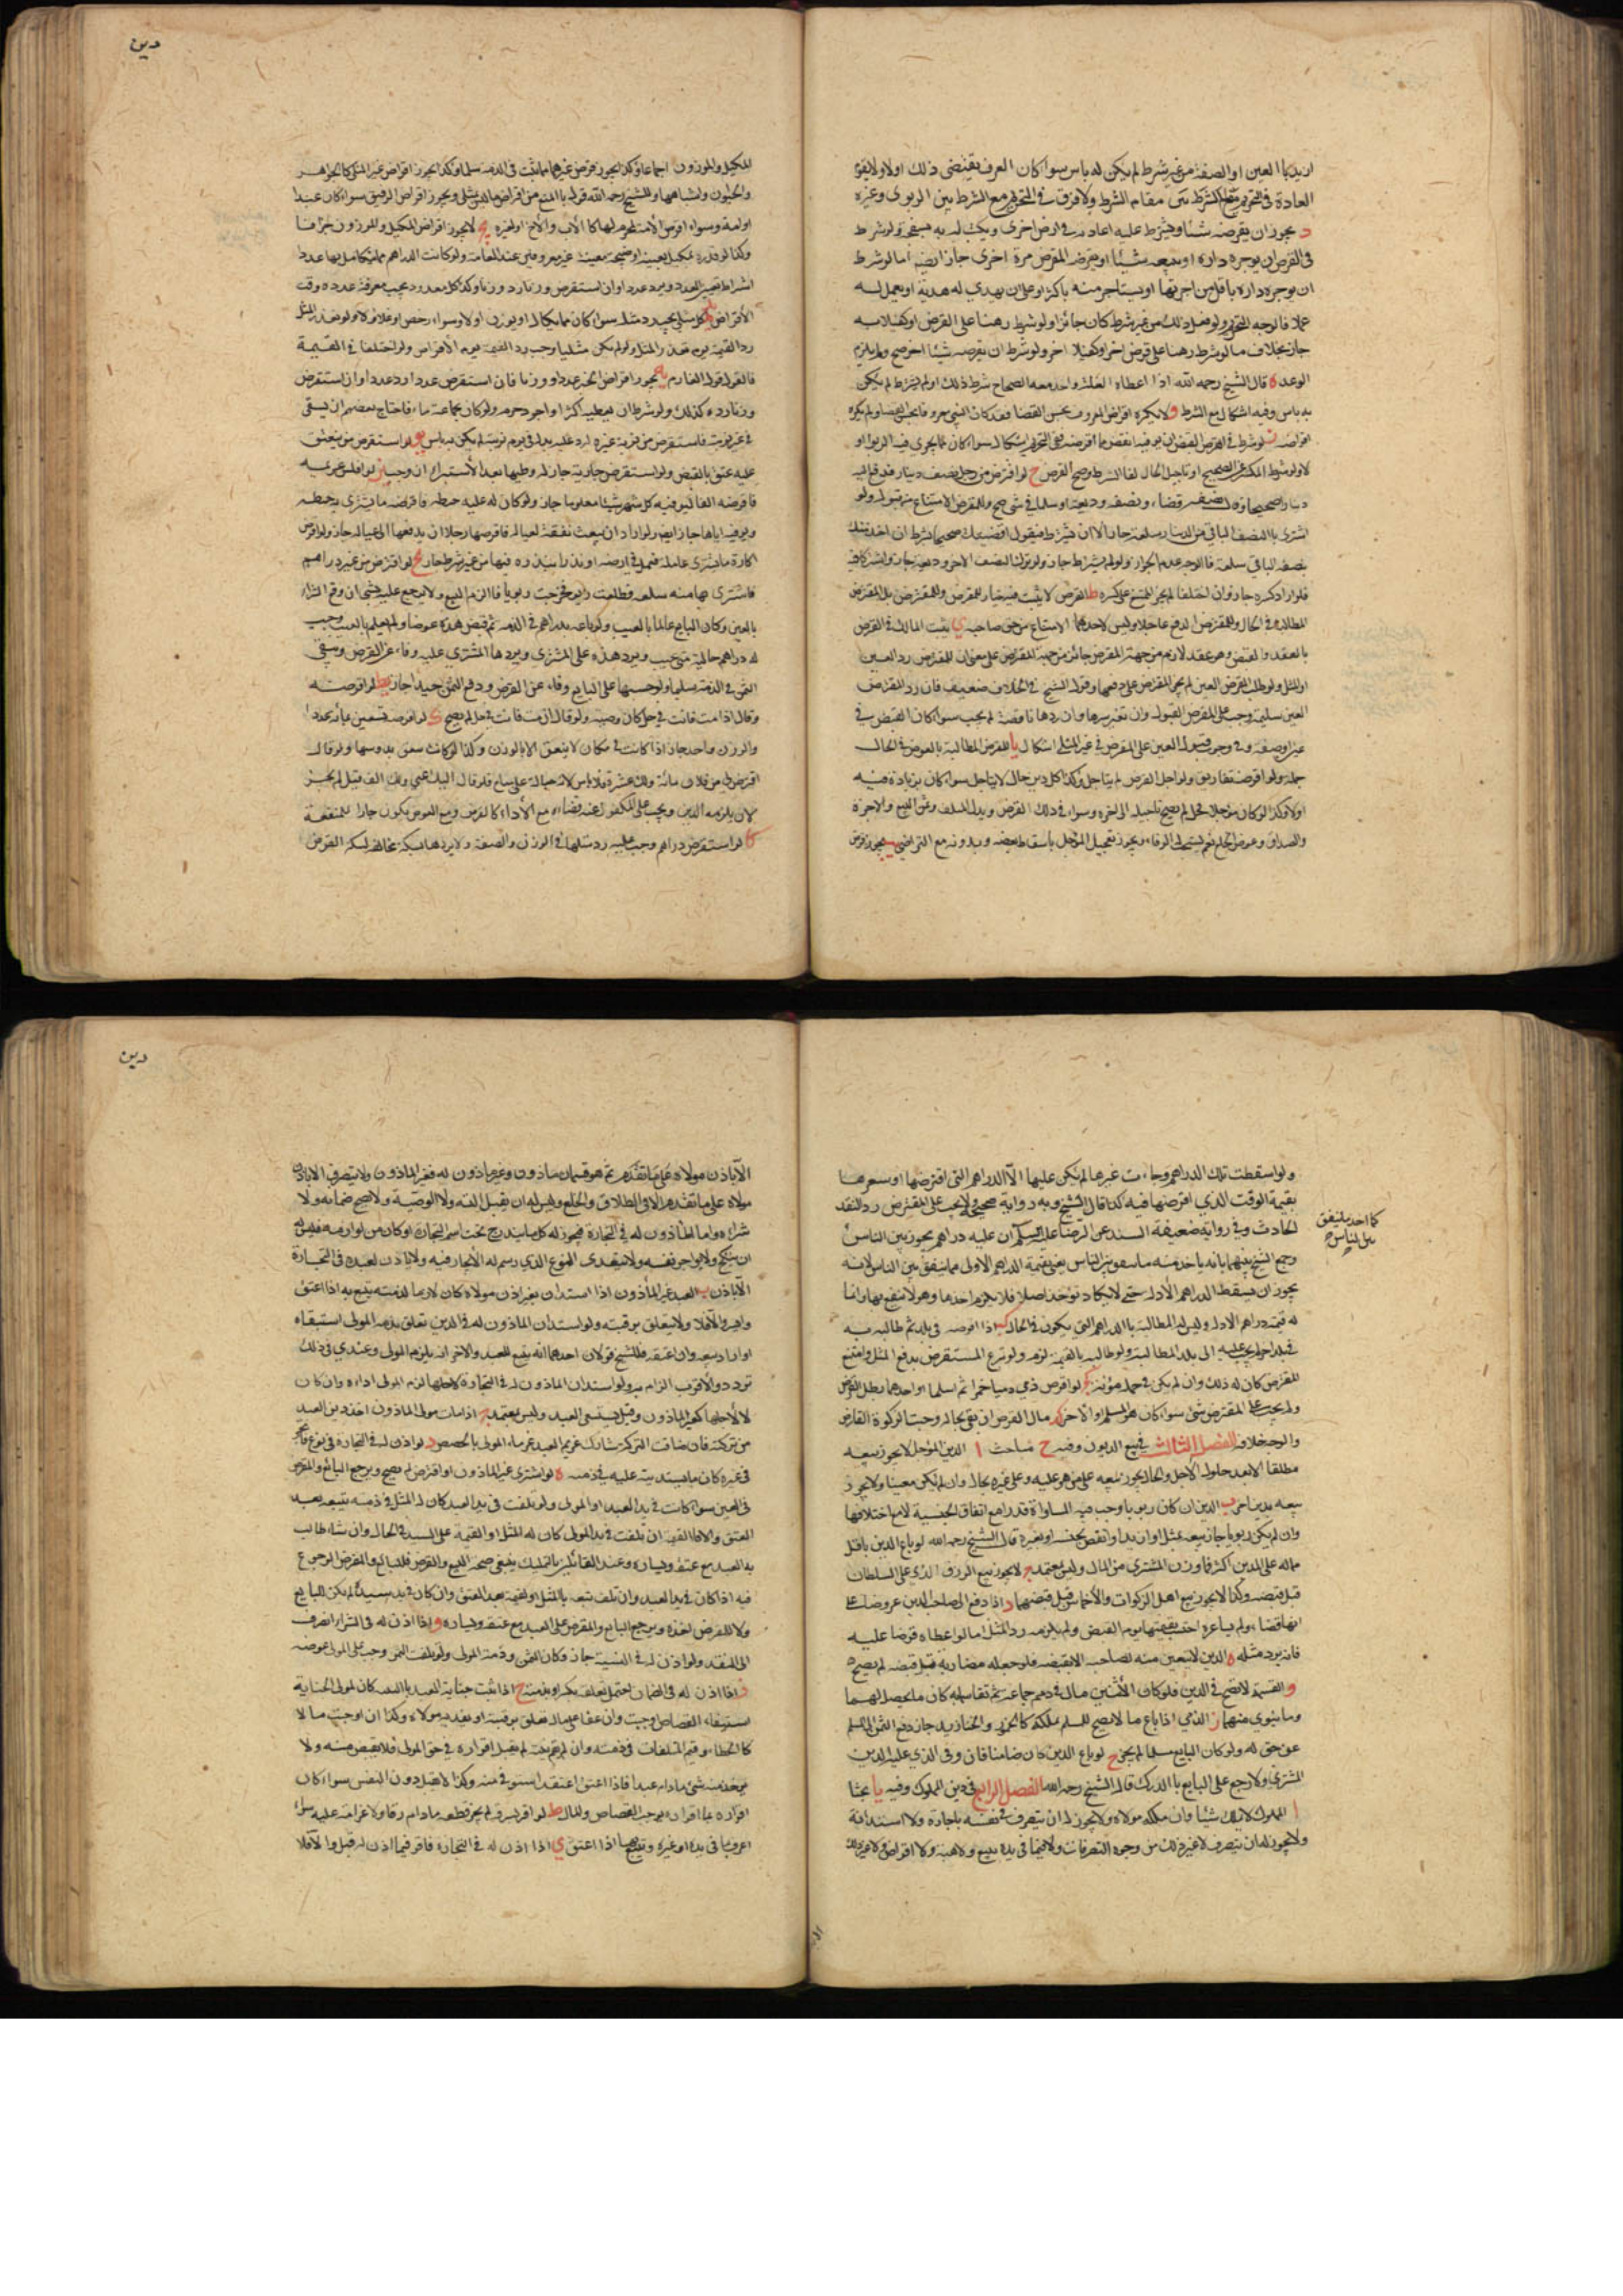 ازيد بها العين او الصفة من غير شرط لم يكن به باس سواء كان العرف يقتضى ذلك اولا ولا يقوم
العادة فى التحريم مقام الشرط ولا فرق فى التحريم مع الشرط بين الربوى وغيره
د يجوز ان يقرضه شيئا ويشترط عليه اعادته فى ارض اخرى ويكتب له به سفتجة ولو شرط
فى القرض ان يوجره داره او يبيعه شيئا او يقرضه المقترض مرة اخرى جاز ايضا اما لو شرط
ان يوجره داره باقل من اجرتها او يستاجر منه باكثر او على ان يهدي له هدية او يعمل له
عملا فالوجه التحريم ولو فعل ذلك من غير شرط كان جائزا ولو شرط رهنا على القرض او كفيلا به
جاز بخلاف ما لو شرط رهنا على قرض اخر او كفيلا اخر ولو شرط ان يقرضه شيئا اخر صح ولم يلزم
الوعد ه قال الشيخ رحمه الله اذا اعطاه الغلة واخذ منه الصحاح شرط ذلك او لم يشترط لم يكن
به باس وفيه اشكال مع الشرط و لا يكره اقراض المعروف بحسن القضا
لو شرط فى القرض ان يوفيه انقص مما اقرضه ففى التحريم اشكال سواء كان مما يجرى فيه الربوا او
لا ولو شرط المكسر عن الصحيح او تاجيل الحال لغا الشرط وصح القرض ح لو اقترض من رجل نصف دينار فدفع اليه
دينارا صحيحا نصفه قضاء ونصفه وديعة او سلما فى شى صح وللمقرض الامتناع من قبوله ولو
اشترى بالنصف الباقى من الدينار سلعة جاز الا ان يشترط فيقول اقضيتك صحيحا بشرط ان اخذ منك
بنصفه الباقى سلعة فالوجه عدم الجواز ولو لم يشترط جاز ولو ترك النصف الاخر وديعة جاز
فلو اراد كسره جاز وان اختلفا لم يجبر الممتنع على كسره ط القرض لا يثبت فيه خيار للمقرض وللمقترض بل للمقرض
المطالبة فى الحال وللمقترض الدفع عاجلا وليس لاحدهما الامتناع من حق صاحبه ى يثبت المالك فى القرض
بالعقد والقبض وهو عقد لازم من جهة المقرض جائز من جهة المقترض على معنى ان للمقترض رد العين
او المثل ولو طلب المقرض العين لم يجبر المقترض على دفعها وقول الشيخ فى الخلاف ضعيف فان رد المقترض
العين سليمة وجب على المقرض القبول وان تغير سعرها وان ردها ناقصة لم يجب سواء كان النقص فى
عين او صفة وفى وجوب قبول العين على المقرض فى غير المثلى اشكال يا للمقرض المطالبة بالعوض فى الحال
جملة ولو اقرضه تفاريق ولو اجل القرض لم يتاجل وكذا كل دين حال لا يتاجل سواء كان بزيادة فيه
اولا وكذا لو كان موجلا بمحل لم يصح تاجيله الى اخره وسواء فى ذلك القرض وبدل المتلف وثمن المبيع والاجرة
والصداق وعوض الخلع نعم يستحب الوفاء ويجوز تعجيل الموجل باسقاط بعضه وبدونه مع التراضى يب يجوز قرض
دين
المكيل والموزون اجماعا وكذا يجوز قرض غيرهما مما يثبت فى الذمة سلما وكذا يجوز اقراض غير المثلى كالجواهر
والحيوان وما شابهها وللشيخ رحمه الله قول بالمنع من اقراض ما ليس بمثلى ويجوز اقراض الرقيق سواء كان عبدا
او امة وسواء اقترض الامة محرم لها كالاب والاخ او غيره يج لا يجوز اقراض المكيل والموزون جزافا
وكذا لو قدره بمكيل بعينه او صنجة معينة غير معروفين عند العامة ولو كانت الدراهم مما يتعامل بها عددا
اشتراط تعيين العدد ويرد عددا وان استقرض وزنا رد وزنا وكذا كل معدود يجب معرفة عدده وقت
الاقراض يد كل مثلى يجب رد مثله سواء كان مما يكال او يوزن اولا وسواء رخص او غلا اولا ولو تعذر المثل
رد القيمة يوم تعذر المثل ولو لم يكن مثليا وجب رد القيمة يوم الاقراض ولو اختلفا فى القيمة
فالقول قول الغارم يه يجوز اقراض الخبز عددا ووزنا فان استقرض عددا رد عددا وان استقرض
وزنا رده كذلك ولو شرط ان يعطيه اكثر او اجود حرم ولو كان بجماعة ماء فاحتاج بعضهم ان يسقى
فى غير نوبته فاستقرض من نوبة غيره ليرد عليه بدله فى يوم نوبته لم يكن به باس يو لو استقرض من ينعتق
عليه عتق بالقبض ولو استقرض جارية جاز له وطيها بعد الاستبراء ان وجب يز لو افلس غريمه
فاقرضه الفا ليوفيه كل شهر شيئا معلوما جاز ولو كان له عليه حنطة فاقرضه ما يشترى به حنطة
ويوفيه اياها جاز ايضا ولو اراد ان يبعث نفقة لعياله فاقرضها رجلا ان يدفعها الى عياله جاز ولو اقرض
اكاره ما يشترى عاملة فيعمل فى ارضه او بذرا يبذره فيها من غير شرط جاز يح لو اقترض من غيره دراهم
فاشترى بها منه سلعة فطلعت زيوفا فالزم البيع ولا يرجع عليه بشى ان وقع الشراء
بالعين وكان البايع عالما بالعيب ولو باعه بدراهم فى الذمة ثم قبض هذه عوضا ولم يعلم بالعيب وجب
له دراهم خالية من عيب ويرد هذه على المشترى ويردها المشترى عليه وفاء عن القرض ويبقى
الثمن فى الذمة سليما ولو حسبها على البايع وفاء عن القرض ودفع الثمن جيدا جاز يط لو اقرضه
وقال اذا مت فانت فى حل كان وصية ولو قال ان مت فانت فى حل لم يصح ك لو اقرضه تسعين بمائة عددا
والوزن واحد جاز اذا كانت فى مكان لا ينفق الا بالوزن وكذا لو كانت تنفق برؤسها ولو قال
اقترض لى من فلان مائة ولك عشرة فلا باس لانه جعالة على مباح فلو قال اكفل عنى ولك الف قيل لم يجز
لانه يلزمه الدين ويجب على المكفول عنه قضاءه مع الاداء كالقرض ومع العوض يكون جارا للمنفعة
كا لو استقرض دراهم وجب عليه رد مثلها فى الوزن والصفة ولا يردها بسكة مخالفة لسكة القرض
ولو اسقطت تلك الدراهم وجاءت غيرها لم يكن عليها الا الدراهم التى اقترضها او سعرها
بقيمة الوقت الذي اقرضها فيه كذا قال الشيخ وبه رواية صحيحة ولا يجب على المقترض رد النقد
الحادث وفى رواية ضعيفة السند عن الرضا عليه السلم ان عليه دراهم يجوز بين الناس
كما اخذ ما ينفق
بين الناس صح
وجمع الشيخ بينهما بانه ياخذ منه ما ينفق بين الناس يعنى بقيمة الدراهم الاولى مما ينفق بين الناس لانه
يجوز ان يسقط الدراهم الاولة حتى لا يكاد توخذ اصلا فلا يلزم اخذها وهو لا ينتفع بها وانما
له قيمة دراهم الاولة وليس له المطالبة بالدراهم التى يكون فى الحال كب اذا اقرضه فى بلد ثم طالبه به
فى بلد اخر لم يجب عليه الى بلد المطالبة ولو طالبه بالقيمة لزم ولو تبرع المستقرض بدفع المثل وامتنع
المقرض كان له ذلك وان لم يكن فى حمله مؤنة كج لو اقرض ذمي ذميا خمرا ثم اسلما او احدهما بطل القرض
ولم يجب على المقترض شى سواء كان هو المسلم او الاخر كد مال القرض ان بقى بحاله وجبت الزكوة القارض
والوجه خلافه الفصل الثالث فى بيع الديون وفيه ح مباحث ا الدين الموجل لا يجوز بيعه
مطلقا الا بعد حلول الاجل والحال يجوز بيعه على من هو عليه وعلى غيره بحال وان لم يكن معينا ولا يجوز
بيعه بدين اخر ب الدين ان كان ربويا وجب فيه المساواة قدرا مع اتفاق الجنسية لا مع اختلافها
وان لم يكن ربويا جاز بيعه بمثل او ازيد او انقص بجنسه او بغيره قال الشيخ رحمه الله لو باع الدين باقل
مما له على المدين اكثر مما وزن المشترى من المال وليس بمعتمد ج لا يجوز بيع الرزق الذي على السلطان
قبل قبضه وكذا لا يجوز بيع اهل الزكوات والاخماس قبل قبضهما د اذا دفع الى صاحب الدين عروضا على
انها قضاء ولم يساعره احتسب بقيمتها يوم القبض ولم يلزمه رد المثل اما لو اعطاه قرضا عليه
فانه يرد مثله ه الدين لا يتعين ملكه لصاحبه الا بقبضه فلو جعله مضاربة قبل قبضه لم يصح
و القسمة لا تصح فى الدين فلو كان لاثنين مال فى ذمم جماعة ثم تقاسماه كان ما يحصل لهما
وما يتوي منهما ز الذمي اذا باع ما لا يصح للمسلم تملكه كالخمر والخنازير جاز دفع الثمن الى المسلم
عن حق له ولو كان البايع مسلما لم يجز ح لو باع الدين كان ضامنا فان وفى الذي عليه الدين
المشترى ولا رجع على البايع بالدرك قاله الشيخ رحمه الله الفصل الرابع فى دين المملوك وفيه يا بحثا
ا المملوك لا يملك شيئا وان ملكه مولاه ولا يجوز له ان يتصرف فى نفسه باجارة ولا استدانة
ولا يجوز له ان يتصرف لا غير ذلك من وجوه التصرفات ولا فيما فى يده ببيع ولا هبة ولا اقراض ولا غير ذلك
دين
الا باذن مولاه على ما تقدم ثم هو قسمان ماذون وغير ماذون له فغير الماذون ولا يتصرف الا باذن
مولاه على ما تقدم الا فى الطلاق والخلع وليس له ان يقبل الهبة ولا الوصية ولا يصح ضمانه ولا
شراءه واما الماذون له فى التجارة فيجوز له كل ما يندرج تحت اسم التجارة او كان من لوازمه فليس له
ان ينكح ولا يواجر نفسه ولا يتعدى النوع الذي رسم له الاتجار فيه ولا ياذن لعبده فى التجارة
الا باذن ب العبد غير الماذون اذا استدان بغير اذن مولاه كان لازما لذمته يتبع به اذا اعتق
وايسر والا فلا ولا يتعلق برقبته ولو استدان الماذون له فى الدين تعلق بذمة المولى استبقاه
او اراد بيعه وان اعتقه فللشيخ قولان احدهما انه يتبع للعبد والاخر انه يلزم المولى وعندي فى ذلك
تردد والاقرب الزام به ولو استدان الماذون له فى التجارة لاجلها لزم المولى اداءه وان كان
لا لاجلها كغير الماذون وقيل يستسعى العبد وليس بمعتمد ج اذا مات مولى الماذون اخذ دين العبد
من تركته فان ضاقت التركة شارك غريم العبد غرماء المولى بالحصص د لو اذن له فى التجارة فى نوع فاتجر
فى غيره كان ما يستدينه عليه فى ذمته ه لو اشترى غير الماذون او اقترض لم يصح ويرجع البايع والمقرض
فى العين سواء كانت فى يد العبد او المولى ولو تلفت فى يد العبد كان له المثل فى ذمته يتبعه بعد
العتق والا فالقيمة ان تلفت فى يد المولى كان له المثل او القيمة على السيد فى الحال وان شاء طالب
به العبد مع عتقه ويساره وعند القائلين بالتمليك ينبغى صحة البيع والقرض فللبايع والمقرض الرجوع
فيه اذا كان فى يد العبد وان تلف تبعه بالمثل او القيمة بعد العتق وان كان فى يد سيده لم يكن للبايع
ولا للمقرض اخذه ويرجع البايع والمقرض على العبد مع عتقه ويساره و اذا اذن له فى الشراء انصرف
الى النقد ولو اذن له فى النسية جاز وكان الثمن فى ذمة المولى ولو تلفت الثمن وجب على المولى عوضه
ز اذا اذن له فى الضمان احتمل تعلقه بكسبه او بذمته ح اذا ثبت جناية العبد بالبينة كان لمولى الجناية
استيفاء القصاص وجبت وان عفا على مال تعلق برقبته او يفديه مولاه وكذا ان اوجبت مالا
كالخطاء وقيم المتلفات فى ذمته وان لم يقم بينة لم يقبل اقراره فى حق المولى فلا يقتص منه ولا
يوخذ منه شى مادام عبدا فاذا اعتق استوفى منه وكذا لا يقبل دون النفس سواء كان
اقراره بما اقراره يوجب القصاص والمال ط لو اقر بسرقة لم يجز قطعه مادام رقا ولا غرامة عليه سواء
اقر بما فى يده او غيره ويتبع بها اذا اعتق ى اذا اذن له فى التجارة فاقر فيما اذن له قبل والا فلا